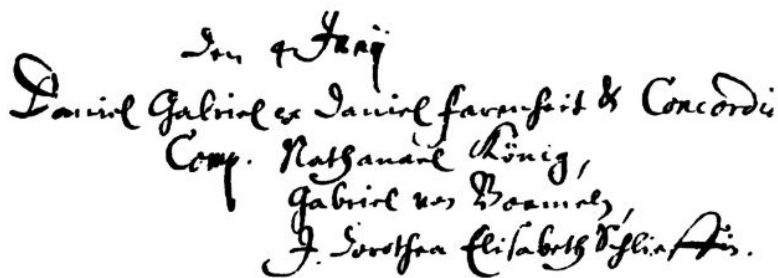 Den 4 Junij
Daniel Gabriel ex Daniel Farenheit & Concordia
Comp. Nathanael König,
Gabriel von Bömeln,
J. Dorothea Elisabeth Schlieffin.